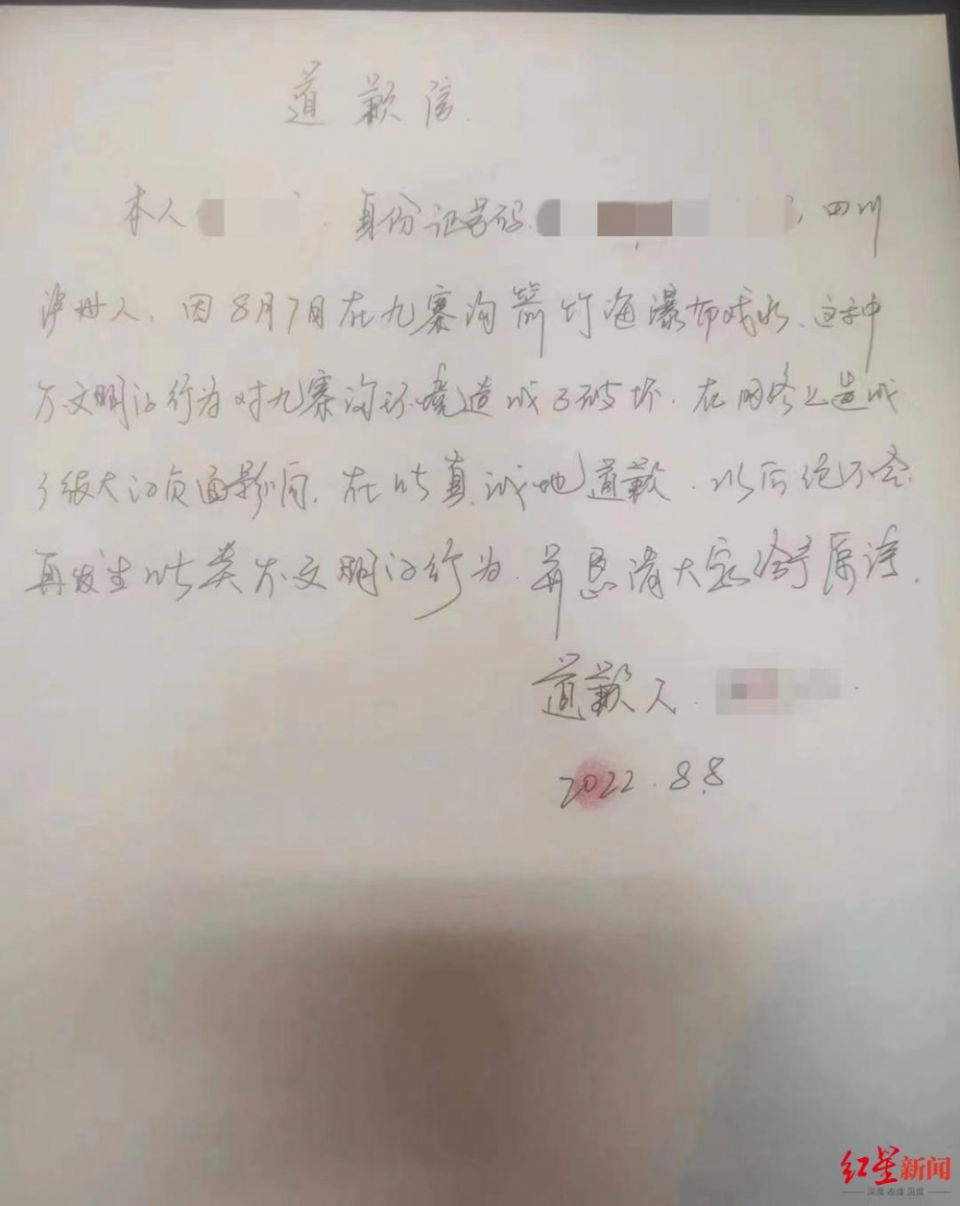 道歉信
本人 身份证号码 ,四川
泸州人,因8月7日在九寨沟箭竹海瀑布戏水,这种
不文明的行为对九寨沟环境造成了破坏.在网络上造成
了极大的负面影响,在此真诚地道歉.以后绝不会
再发生此类不文明的行为.并恳请大家给予原谅.
道歉人.
2022.8.8
红星新闻
深度 态度 温度